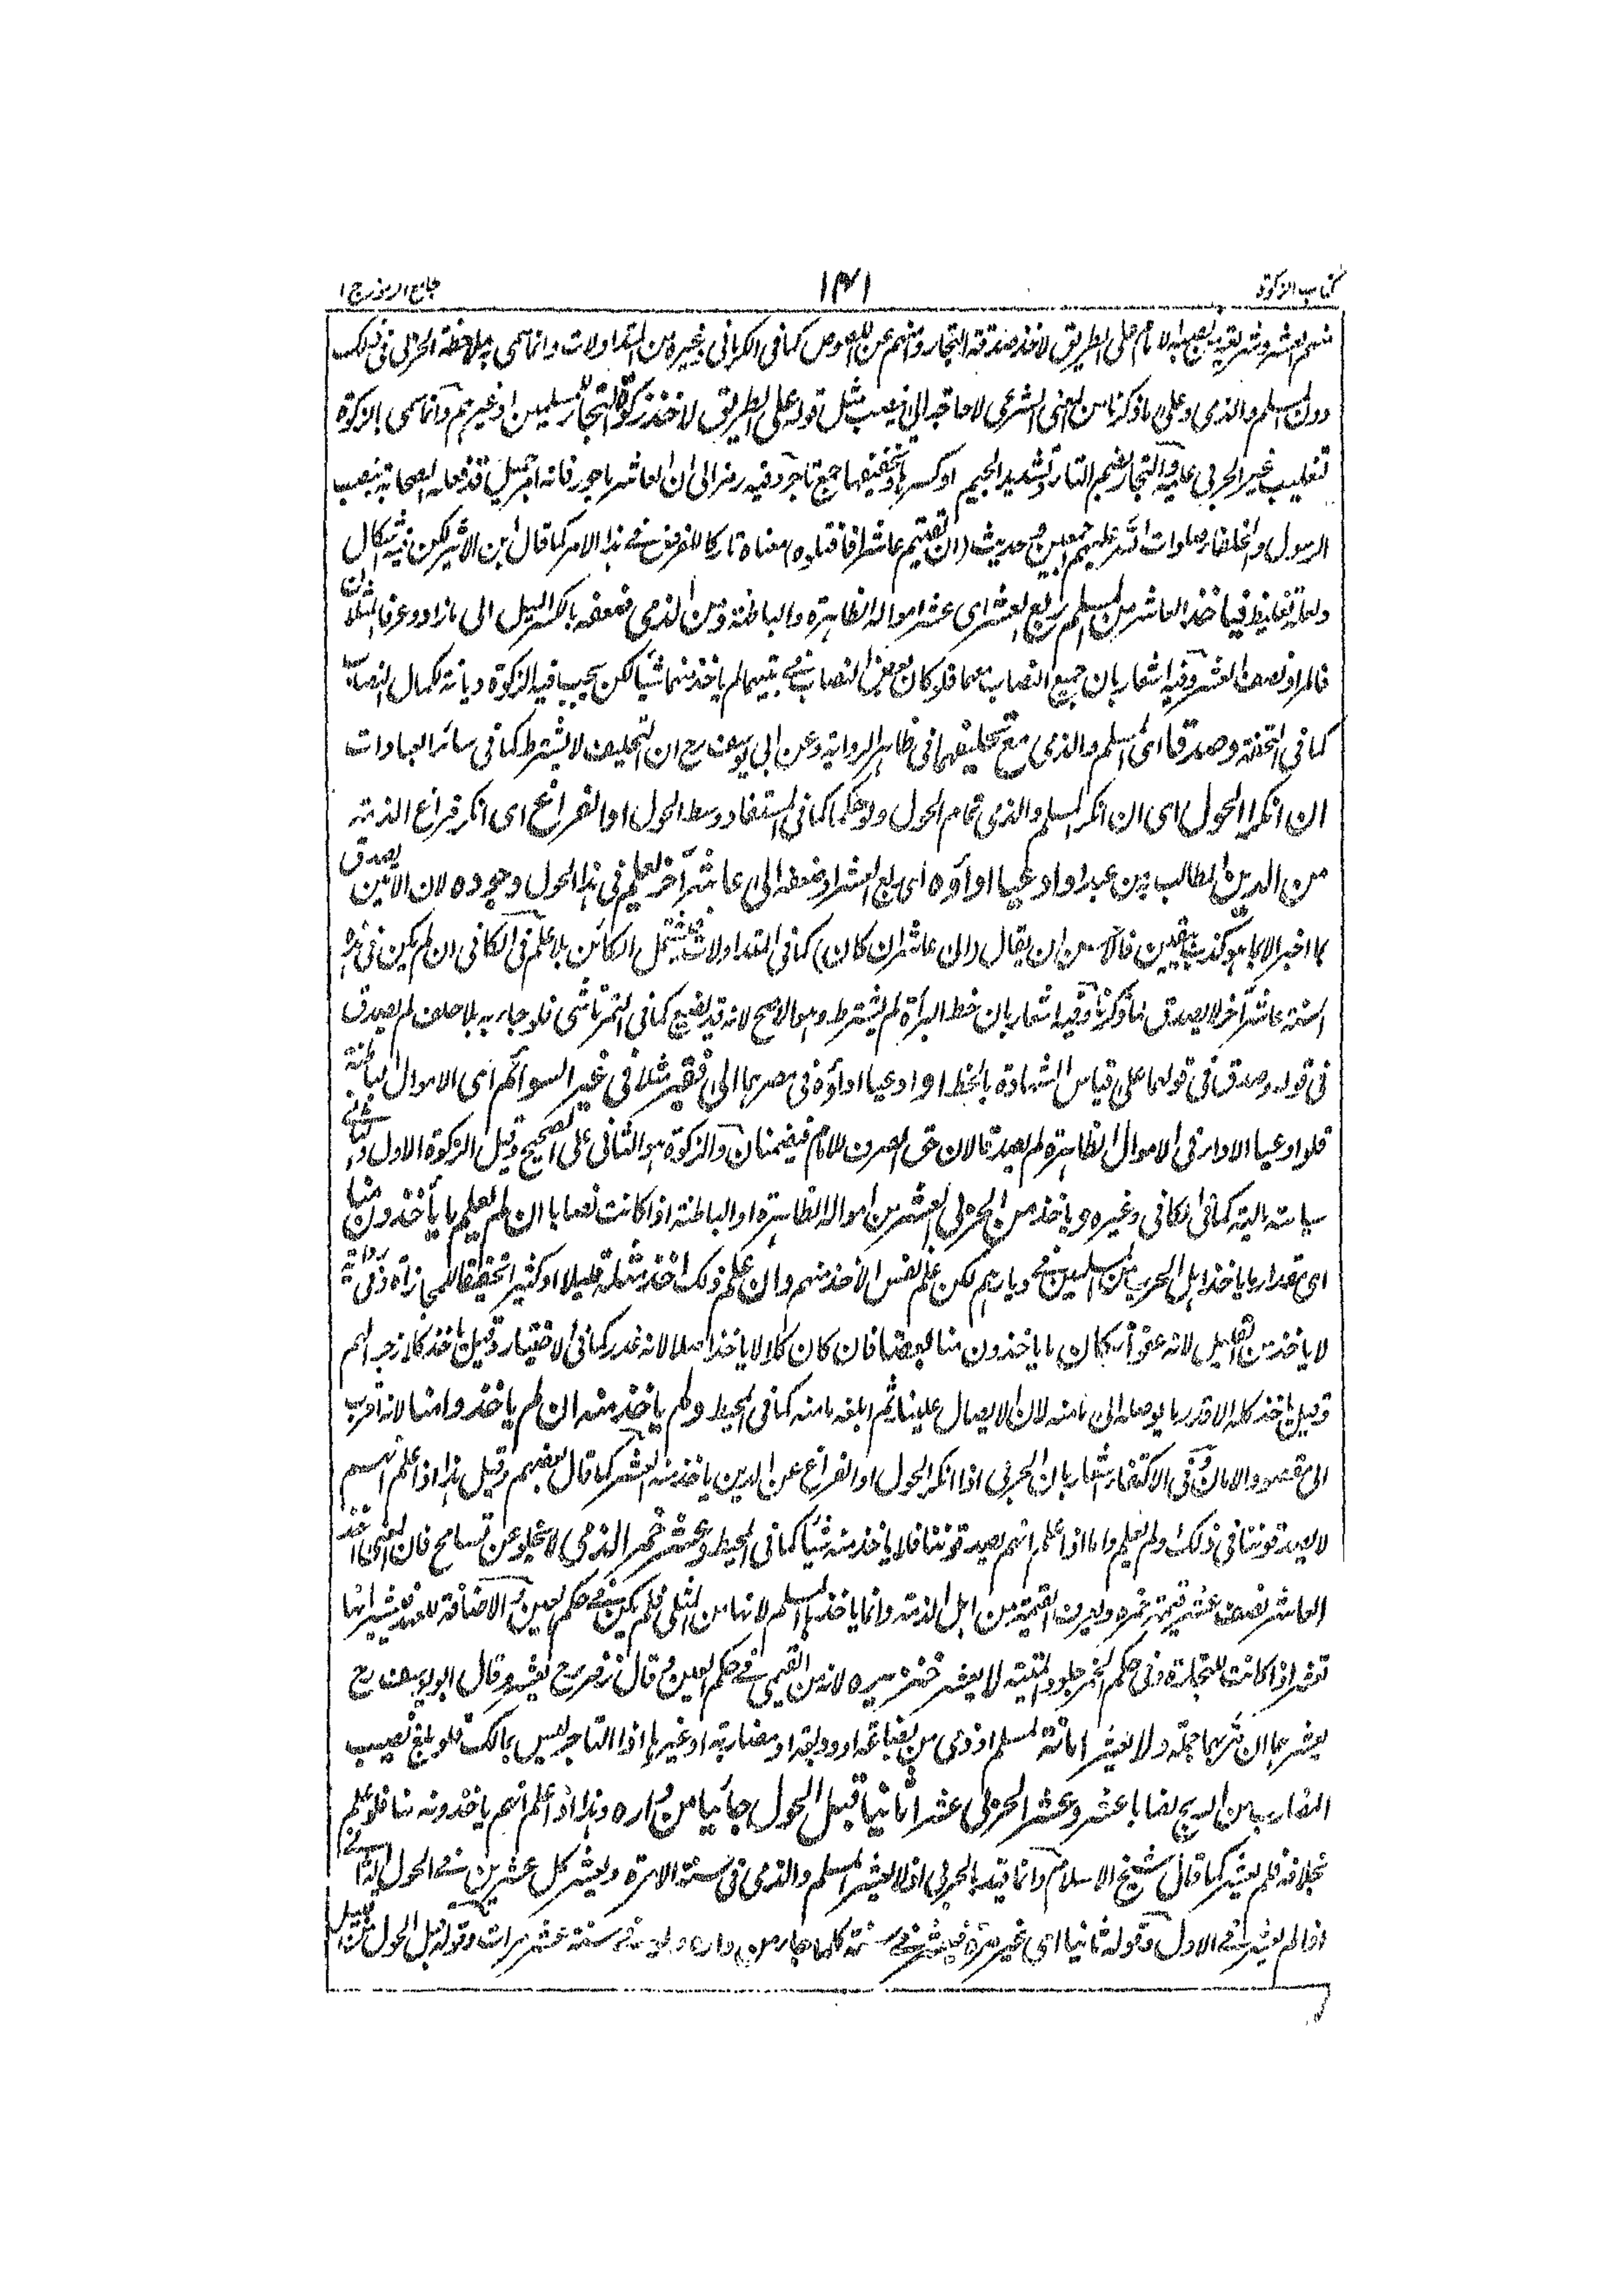 كتاب الزكوة
١٤١
جامع الرموز ج ١
منهم العشر وشريعة من نصبه الامام على الطريق لاخذ صدقة التجار وامنهم عن اللصوص كما في الكرماني وغيره من المتداولات وانما سمى به بملاحظة الحربي في ذلك
دون المسلم والذمي وعلى ما ذكرنا من المعنى الشرعي لا حاجة الى نصب مثل قوله على الطريق لاخذ زكوة التجار مسلمين او غيرهم وانما سمى بالزكوة
تغليب غير الحربي عليه والتجار بضم التاء وتشديد الجيم او كسرها وتخفيفها جمع تاجر وفيه رمز الى ان العاشر ماجور فانه امر جميل قد فعله الصحابة بنصب
الرسول والخلفاء صلوات الله عليهم اجمعين وحديث (ان لقيتم عاشرا فاقتلوه) معناه تاركا للفرض في هذا الامر كما قال ابن الاثير لكن فيه اشكال
ولعله تغليظ فيأخذ العاشر من المسلم ربع العشر اى عشر امواله الظاهرة والباطنة ومن الذمي ضعفه بالكسر الميل الى ما زاد وعرفا المثلان
فالمراد نصف العشر وفيه اشعار بان جميع النصاب معهما فلو كان بعض النصاب في بيتهما لم يأخذ منهما شيئا لكن يجب فيه الزكوة ديانة لكمال النصاب
كما في التحفة وصدقا اى المسلم والذمي مع تحليفهما في ظاهر الرواية وعن ابي يوسف رح ان التحليف لا يشترط كما في سائر العبادات
ان انكرا الحول اى ان انكر المسلم والذمي تمام الحول ولو حكما كما في المستفاد وسط الحول او الفراغ اى انكر فراغ الذمة
من الدين المطالب من عبد او ادعيا اداؤه اى ربع العشر او ضعفه الى عاشر آخر يعلم في هذا الحول وجوده لان الامين يصدق
بما اخبر الا بما هو كذب بيقين فالاحسن ان يقال (الى عاشر ان كان) كما في المتداولات فيشتمل الكائن بلا علم في الكافي ان لم يكن في هذه
السنة عاشر آخر لا يصدق لما ذكرنا وفيه اشعار بان خط البراءة لم يشترط وهو الاصح لانه قد يضيع كما في التمرتاشي فلو جاء به بلا حلف لم يصدق
في قوله وصدق في قولهما على قياس الشهادة بالخط او ادعيا اداؤه في مصر بهما الى فقير مثلا في غير السوائم اى الاموال الباطنة
فلو ادعيا الاداء في الاموال الظاهرة لم يصدقا لان حق الصرف للامام فيضمنان والزكوة هو الثاني على الصحيح وقيل الزكوة الاول والثاني
سياسة مالية كما في الكافي وغيره ويأخذ من الحربي العشر من امواله الظاهرة او الباطنة اذا كانت نصابا ان لم يعلم ما يأخذون منا
اى مقدار ما يأخذ اهل الحرب من المسلمين في ديارهم لكن علم نفس الاخذ منهم وان علم ذلك اخذ مثله قليلا او كثيرا تحقيقا للمجازاة وفي رواية
لا يأخذ من القليل لانه عفو ان كان ما يأخذون منا بعضا فان كان كلا لا يأخذ اصلا لانه غدر كما في الاختيار وقيل يأخذ كلا زجرا لهم
وقيل يأخذ كله الا قدر ما يوصله الى مامنه لان الايصال علينا ثم ابلغه مامنه كما في المحيط ولم يأخذ منه ان لم يأخذوا منا لانه اقرب
الى مقصود الامان وفي الاكتفاء اشعار بان الحربي اذا انكر الحول او الفراغ عن الدين يأخذ منه العشر كما قال بعضهم وقيل هذا اذا علم انهم
لا يصدقوننا في ذلك ولم يعلم واما اذا علم انهم يصدقوننا فلا يأخذ منه شيئا كما في المحيط وعشر خمر الذمي لا يخلو عن تسامح فان المعنى اخذ
العاشر نصف عشر قيمة خمره ويعرف القيمة من اهل الذمة وانما يأخذ بها المسلم لانها من المثلي فلم يكن في حكم العين والاضافة للعهد فيشير انها
تعشر اذا كانت للتجارة وفي حكم الخمر جلود الميتة لا يعشر خنزيره لانه من القيمي في حكم العين وقال زفر رح يعشر وقال ابو يوسف رح
يعشر بهما ان مر بهما جملة ولا يعشر امانة لمسلم او ذمي من بضاعة او وديعة او مضاربة او غيرها اذا التاجر ليس بمالك فلو بلغ نصيب
المضارب من الربح نصابا عشر وعشر الحربي عشرا ثانيا قبل الحول جائيا من داره وهذا اذا علم انهم يأخذونه منا فلو علم
بخلافه فلم يعشر كما قال شيخ الاسلام وانما قيد بالحربي اذ لا يعشر المسلم والذمي في سنة الا مرة ويعشر كل عشرين في الحول الثاني
اذا لم يعشر في الاول وقوله ثانيا اى غير مرة فيعشر في سنة كلما جاء من داره ولو في سنة عشر مرات وقوله قبل الحول من قبيل